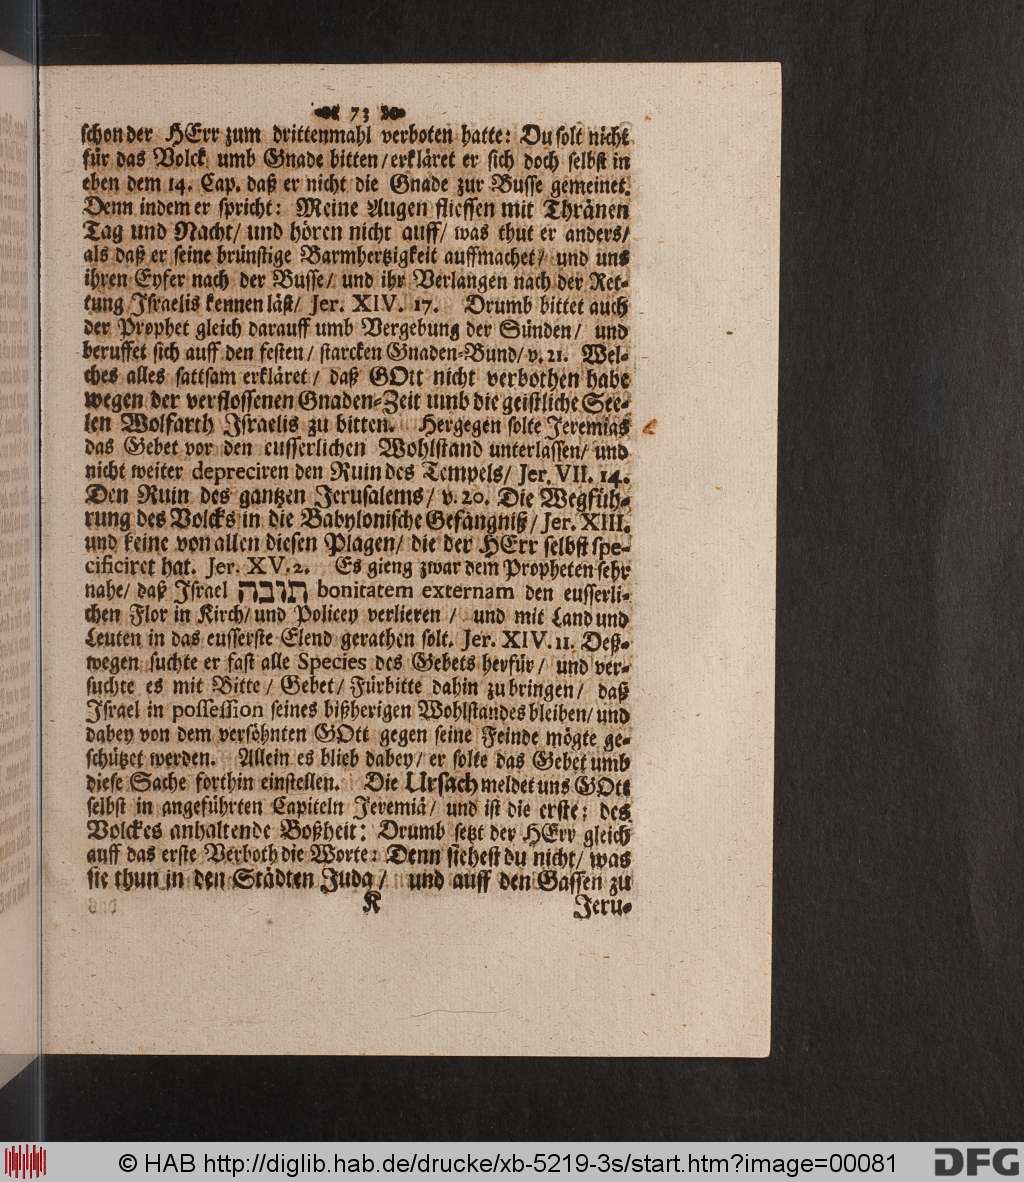 73
schon der HErr zum drittenmahl verboten hatte: Du solt nicht
für das Volck umb Gnade bitten/ erkläret er sich doch selbst in
eben dem 14. Cap. daß er nicht die Gnade zur Busse gemeinet.
Denn indem er spricht: Meine Augen fliessen mit Thränen
Tag und Nacht/ und hören nicht auff/ was thut er anders/
als daß er seine brünstige Barmhertzigkeit auffmachet/ und uns
ihren Eyfer nach der Busse/ und ihr Verlangen nach der Ret-
tung Israelis kennen läst/ Jer. XIV. 17. Drumb bittet auch
der Prophet gleich darauff umb Vergebung der Sünden/ und
beruffet sich auff den festen/ starcken Gnaden-Bund/ v. 21. Wel-
ches alles sattsam erkläret/ daß GOtt nicht verbothen habe
wegen der verflossenen Gnaden-Zeit umb die geistliche See-
len Wolfarth Israelis zu bitten. Hergegen solte Jeremias
das Gebet vor den eusserlichen Wohlstand unterlassen/ und
nicht weiter depreciren den Ruin des Tempels/ Jer. VII. 14.
Den Ruin des gantzen Jerusalems/ v. 20. Die Wegfüh-
rung des Volcks in die Babylonische Gefängniß/ Jer. XIII.
und keine von allen diesen Plagen/ die der HErr selbst spe-
cificiret hat. Jer. XV. 2. Es gieng zwar dem Propheten sehr
nahe/ daß Israel תובה bonitatem externam den eusserli-
chen Flor in Kirch/ und Policey verlieren/ und mit Land und
Leuten in das eusserste Elend gerathen solt. Jer. XIV. 11. Deß-
wegen suchte er fast alle Species des Gebets herfür/ und ver-
suchte es mit Bitte/ Gebet/ Fürbitte dahin zu bringen/ daß
Israel in possession seines bißherigen Wohlstandes bleiben/ und
dabey von dem versöhnten GOtt gegen seine Feinde mögte ge-
schützet werden. Allein es blieb dabey/ er solte das Gebet umb
diese Sache forthin einstellen. Die Ursach meldet uns GOtt
selbst in angeführten Capiteln Jeremiä/ und ist die erste; des
Volckes anhaltende Boßheit: Drumb setzt der HErr gleich
auff das erste Verboth die Worte: Denn siehest du nicht/ was
sie thun in den Städten Juda/ und auff den Gassen zu
K Jeru-
© HAB http://diglib.hab.de/drucke/xb-5219-3s/start.htm?image=00081
DFG